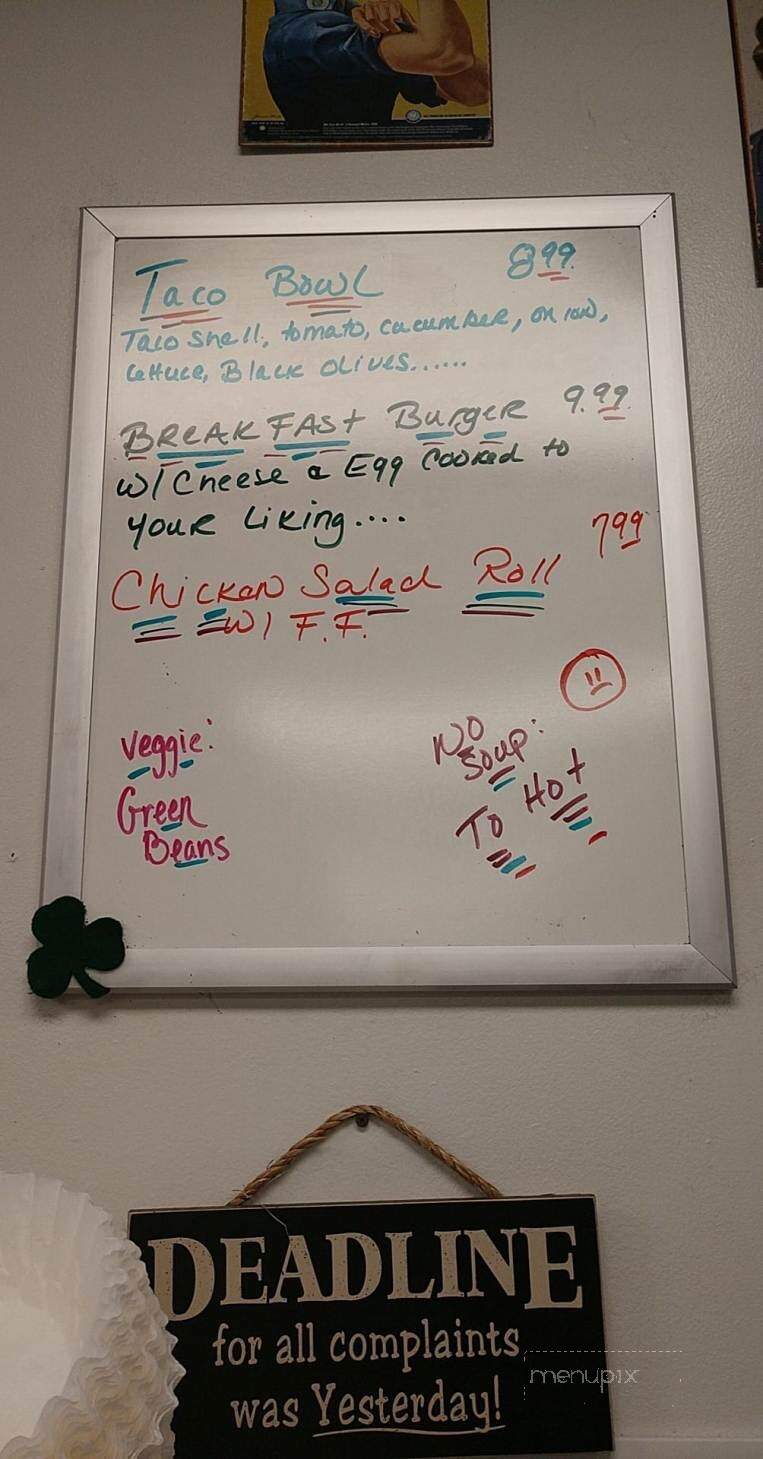 Taco Bowl 8 99
Taco shell, tomato, cucumber, onion,
Lettuce, Black Olives......
BREAKFAST Burger 9.99
W/ Cheese a Egg Cooked to
your Liking....
799
Chicken Salad Roll
W/ F.F.
Veggie:
Green
Beans
No
Soup:
To Hot
DEADLINE
for all complaints
was Yesterday!
menupix